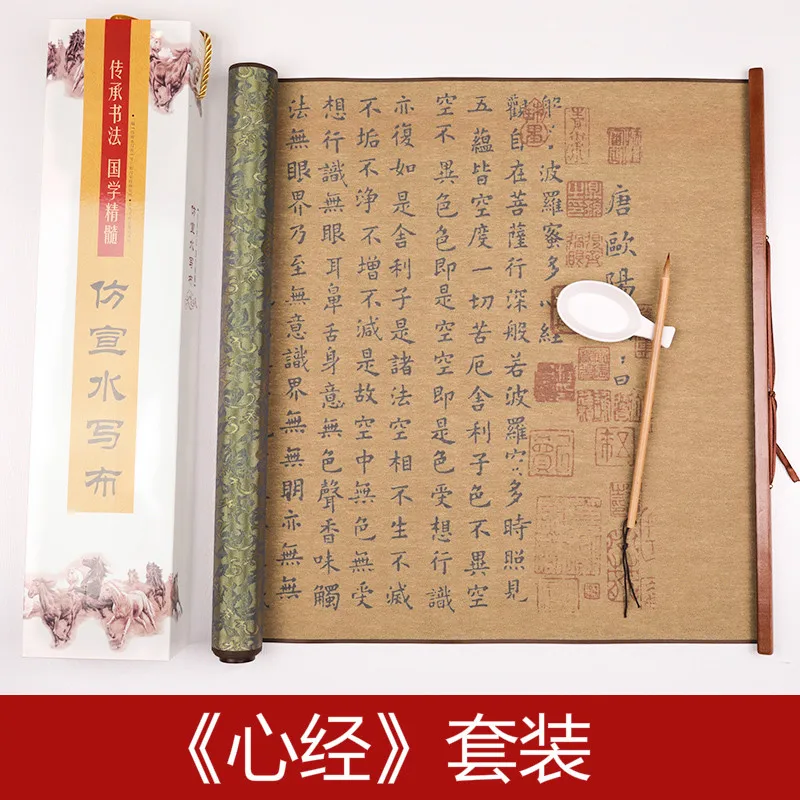 传承书法 国学精髓
仿宣水写布
仿宣水写布
唐歐陽
般 波羅蜜多心經
觀自在菩薩行深般若波羅 多時照見
五蘊皆空度一切苦厄舍利子色不異空
空不異色色即是空空即是色受想行識
亦復如是舍利子是諸法空相不生不滅
不垢不淨不增不減是故空中無色無受
想行識無眼耳鼻舌身意無色聲香味觸
法無眼界乃至無意識界無無明亦無無
《心经》套装